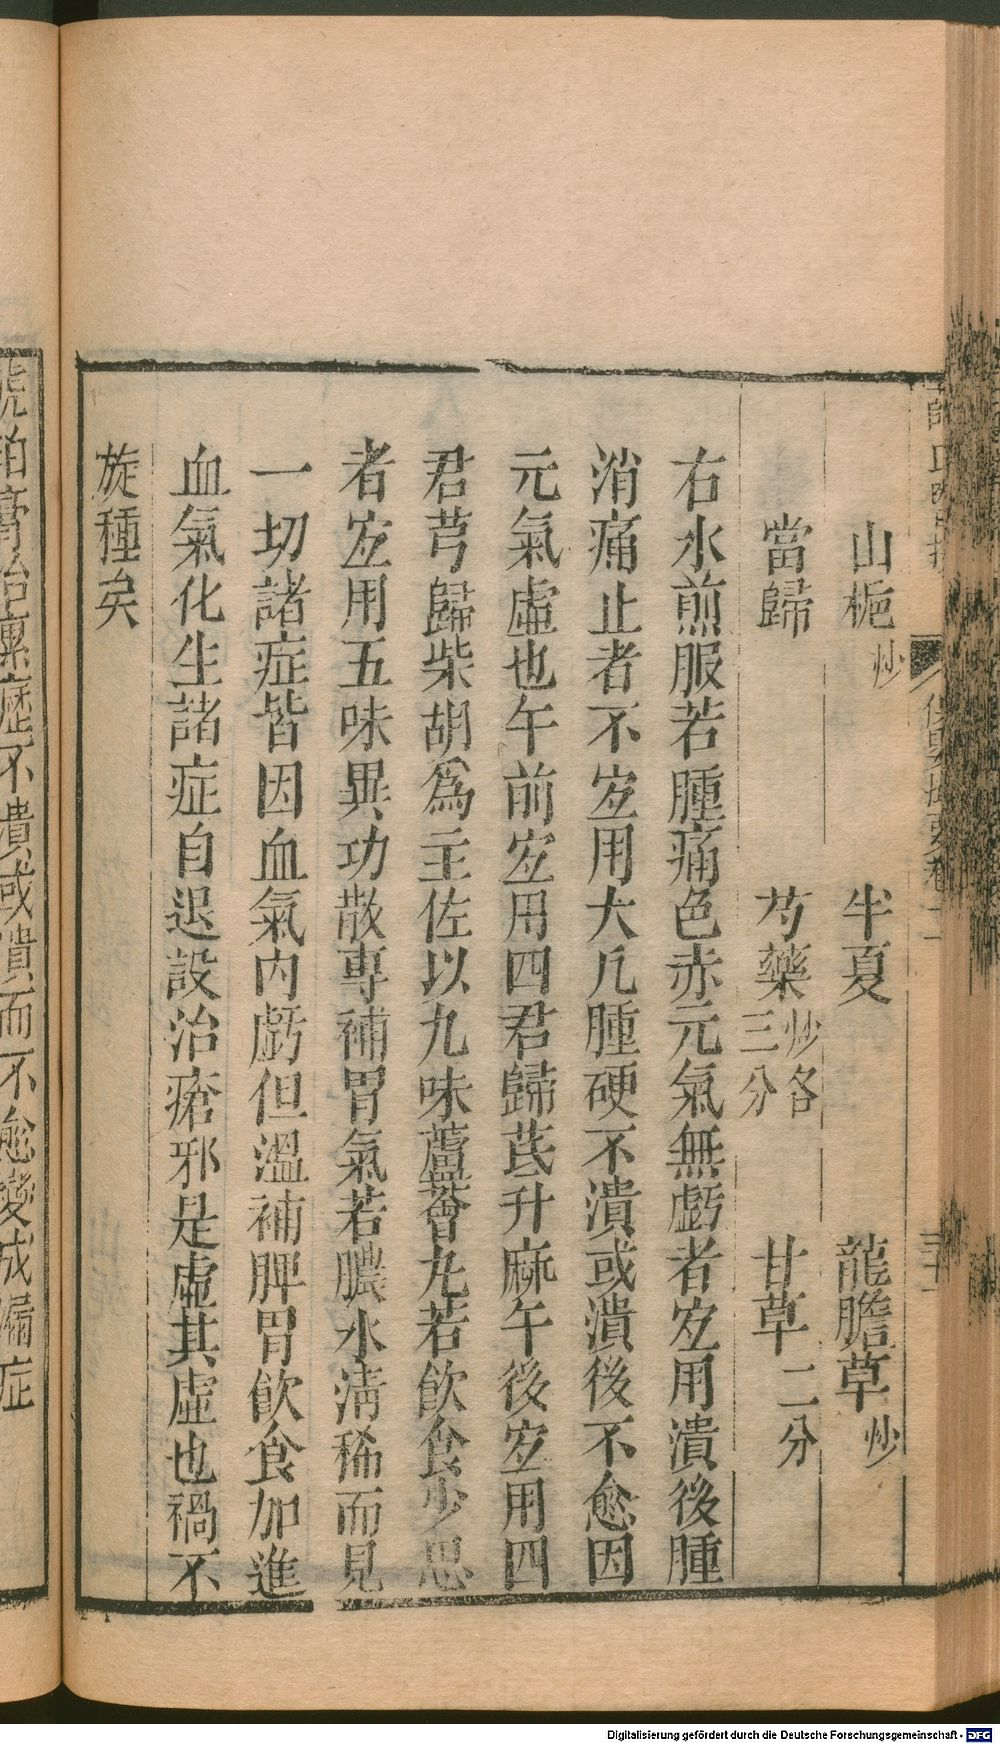 山梔炒　半夏　龍膽草炒
當歸　芍藥炒各三分　甘草二分
右水煎服若腫痛色赤元氣無虧者宐用潰後腫
消痛止者不宐用大凡腫硬不潰或潰後不愈因
元氣虛也午前宐用四君歸茋升麻午後宐用四
君芎歸柴胡為主佐以九味蘆薈丸若飲食少思
者宐用五味異功散專補胃氣若膿水淸稀而見
一切諸症皆因血氣內虧但溫補脾胃飲食加進
血氣化生諸症自退設治瘡邪是虛其虛也禍不
旋踵矣
琥珀膏治瘰癧不潰或潰而不愈變成漏症
Digitalisierung gefördert durch die Deutsche Forschungsgemeinschaft - DFG